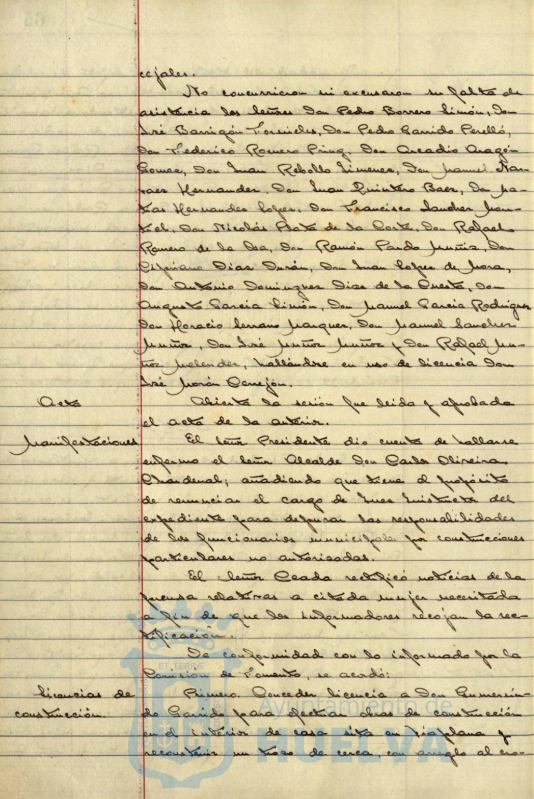 cejales.
No concurrieron ni excusaron su falta de
asistencia los Señores Don Pedro Borrero Limón, Don
José Barrigón Fornieles, Don Pedro Garrido Perelló,
Don Federico Romero Don Arcadio Aragón
Gomez, Don Juan Rebollo Jimenez, Don Manuel Nar-
vaez Hernandez, Don Juan Quintero Baez, Don Ma-
tias Hernandez Lopez, Don Francisco Sanchez Mon-
tiel, Don Nicolás Plata de la Corte, Don Rafael
Romero de la Don Ramón Pardo Muñiz, Don
Cipriano Dias Durán, Don Juan Lopez de Mora,
Don Antonio Dominguez Dias de la Cuesta, Don
Augusto Garcia Limón, Don Manuel Garcia Rodriguez
Don Horacio Serrano Marquez, Don Manuel Sanchez
Muñoz, Don José Muñoz Muñoz y Don Rafael Mu-
ñoz Melendez, hallándose en uso de licencia Don
José Morán Cerrejón.
Acta
Abierta la sesión fue leida y aprobada
el acta de la anterior.
Manifestaciones
El Señor Presidente dió cuenta de hallarse
enfermo el Señor Alcalde Don Carlos Oliveira
Chardenal; añadiendo que tiene el propósito
de renunciar el cargo de Juez Instructor del
expediente para depurar las responsabilidades
de los funcionarios municipales por construcciones
particulares no autorizadas.
El Señor Ceada rectificó noticias de la
prensa relativas a citada mujer necesitada
a fin de que los informadores recojan la rec-
tificación.
De conformidad con lo informado por la
Comision de Fomento, se acordó:
licencias de
construcción.
Primero. Conceder licencia a Don Gumersin-
do Garrido para efectuar obras de construcción
en el interior de casa sita en y
reconstruir un trozo de cerca, con arreglo al cro-
Ayuntamiento de
HUELVA